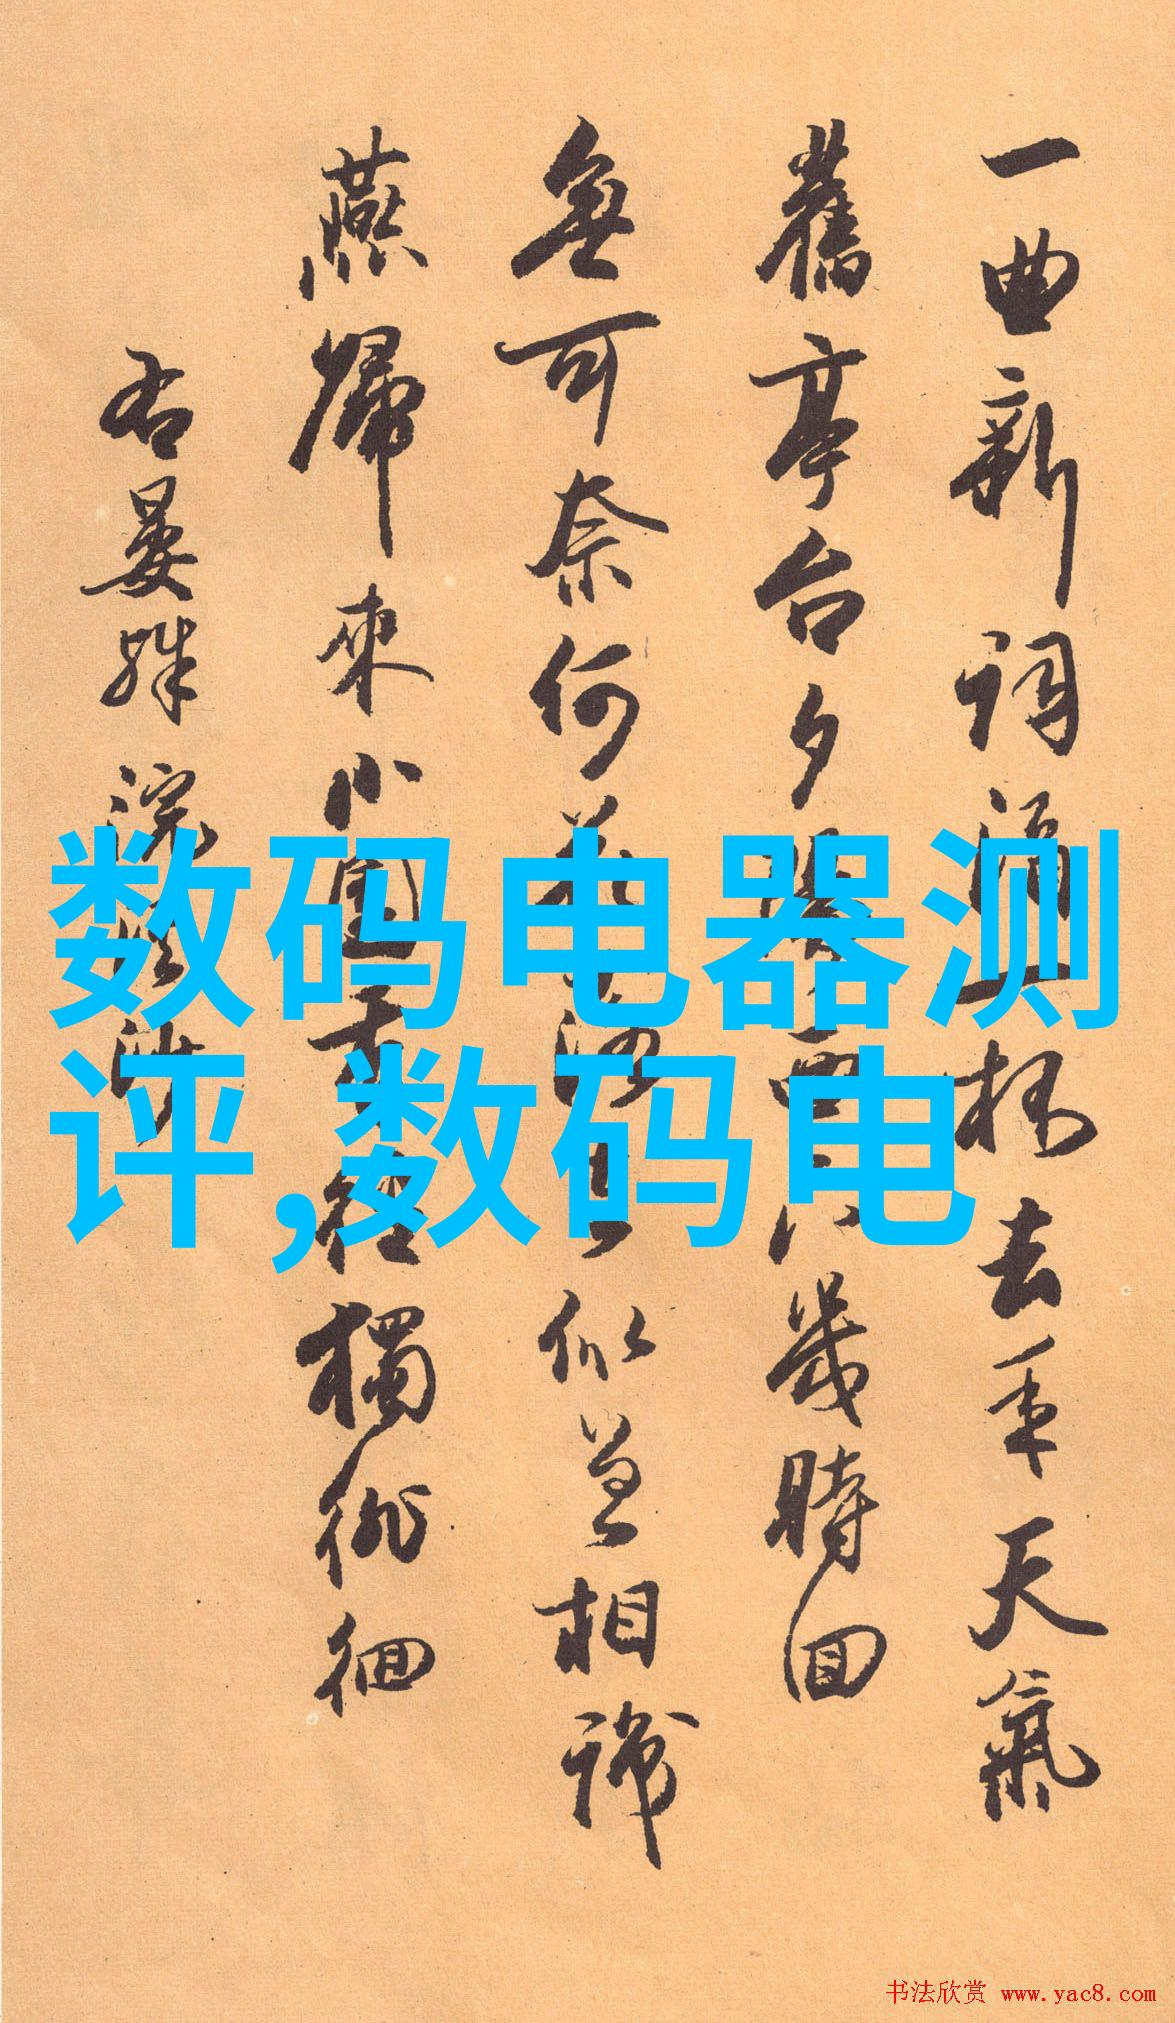 一曲新詞酒一杯去年天氣
舊亭台夕陽西下幾時回
無可奈何花落去似曾相識
燕歸來小園香徑獨徘徊
右晏殊浣溪沙
数码电器测
评,数码电
书法欣赏 www.yac8.com